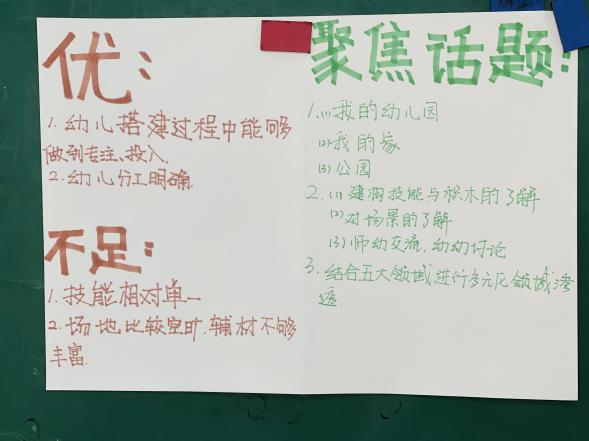 优：
1. 幼儿搭建过程中能够
做到专注、投入.
2. 幼儿分工明确.
不足：
1. 技能相对单一
2. 场地比较空旷.辅材不够
丰富.
聚焦话题：
1.(1)我的幼儿园.
(2)我的家
(3)公园
2.(1)建构技能与积木的了解
(2)对场景的了解
(3)师幼交流.幼幼讨论
3.结合五大领域进行多元化领域渗
透.